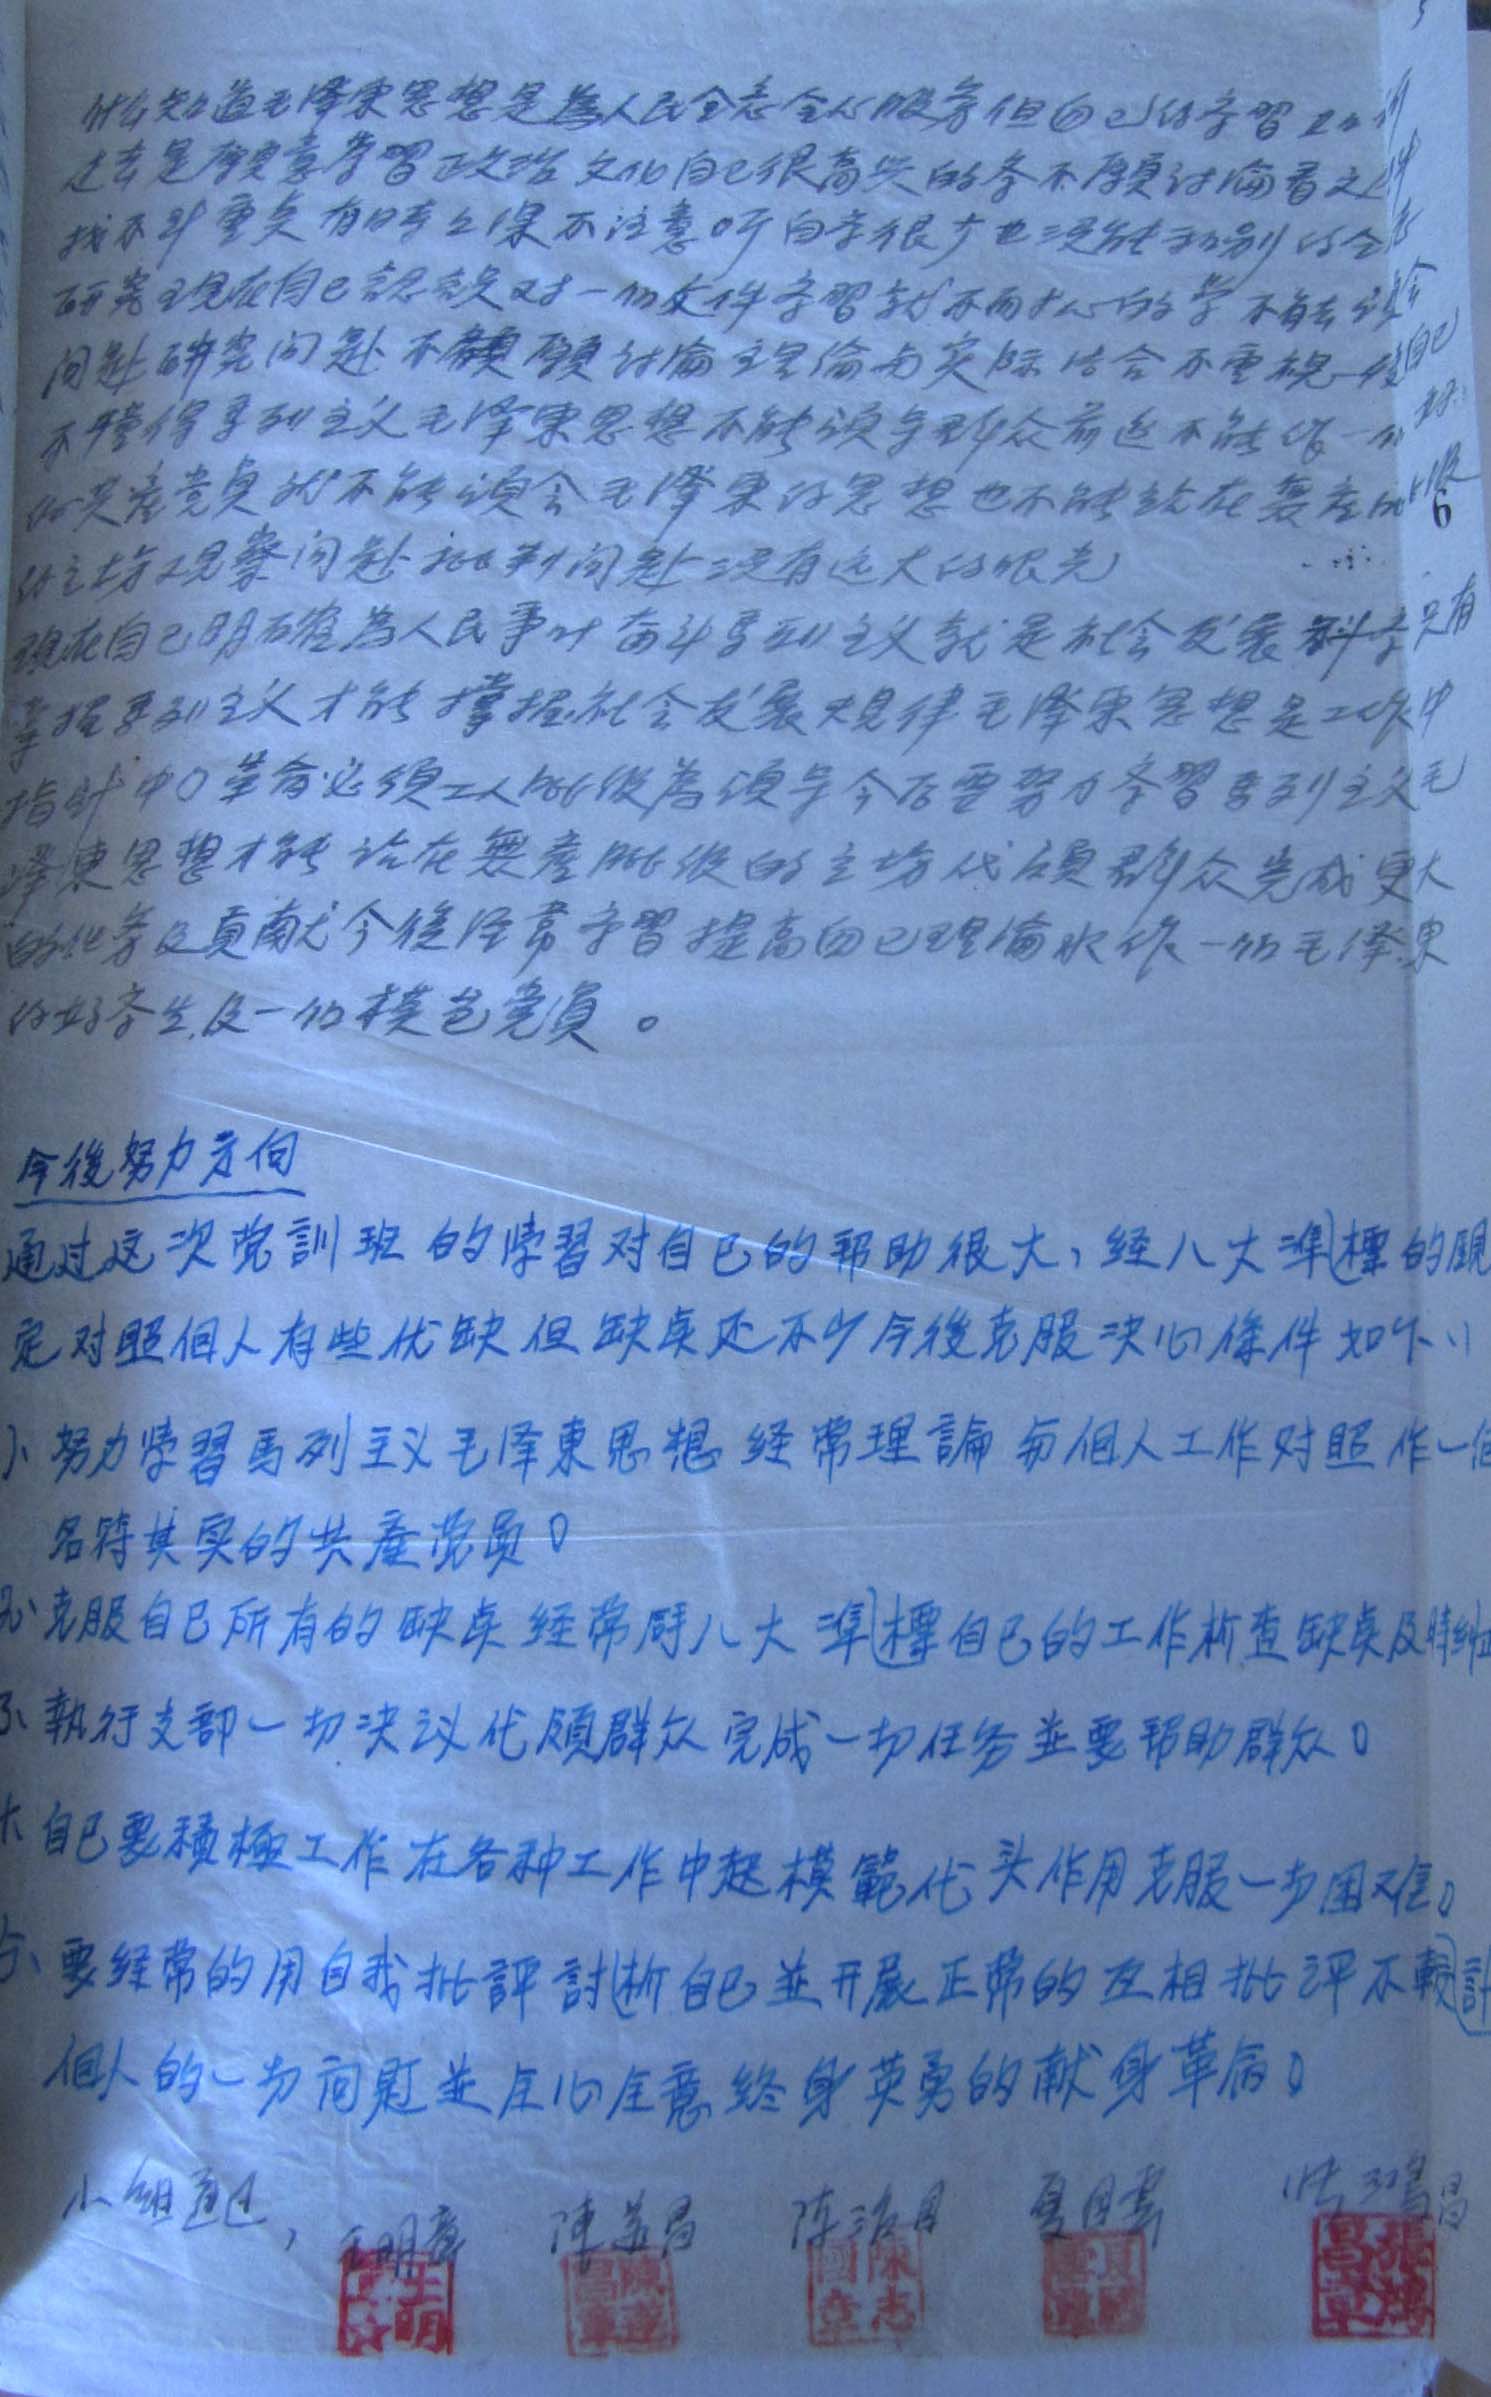 知道毛澤東思想是為人民全意全心服务但自己的学習
过去是願意学習政治文化自己很高兴的参不願討倫看文
找不到重点有时上课不注意听自学很少也没能
研究现在自己認識对一切文件学習就不耐心的学不能去
问题研究问题不願討倫主理倫与实际结合不重視
不懂得馬列主义毛澤東思想不能領导群众前进不能作一個
的共產党員就不能領会毛澤東的思想也不能站在無產
的立場观察问题批判问题没有远大的眼光
現在自己明确為人民事业奋斗馬列主义就是社会发展科学只有
掌握馬列主义才能掌握社会发展规律毛澤東思想是工作中
指針中国革命必須工人阶级為領导今后要努力学習馬列主义毛
澤東思想才能站在無產阶级的立場代領群众完成更大
的任务及貢献今後经常学習提高自己理倫水作一個毛澤東
的好学生及一個模范党員。
今後努力方向
通过这次党訓班的学習对自己的帮助很大、经八大準標的規
定对照個人有些优缺但缺点还不少今後克服决心條件如下
1、努力学習馬列主义毛泽東思想经常理論与個人工作对照作一個
名符其实的共產党員。
2、克服自己所有的缺点经常用八大準標自己的工作析查缺点及時糾正
3、執行支部一切决议代領群众完成一切任务並要帮助群众。
4、自己要積極工作在各种工作中起模範代头作用克服一切困难。
5、要经常的用自我批評討析自己並开展正常的互相批评不較計
個人的一切问题並全心全意終身英勇的献身革命。
小组通过，王明章 陳 昌 陈治国 夏国 张鴻昌
王明章 陳 昌章 陳志國章 夏國 張鴻昌章
6